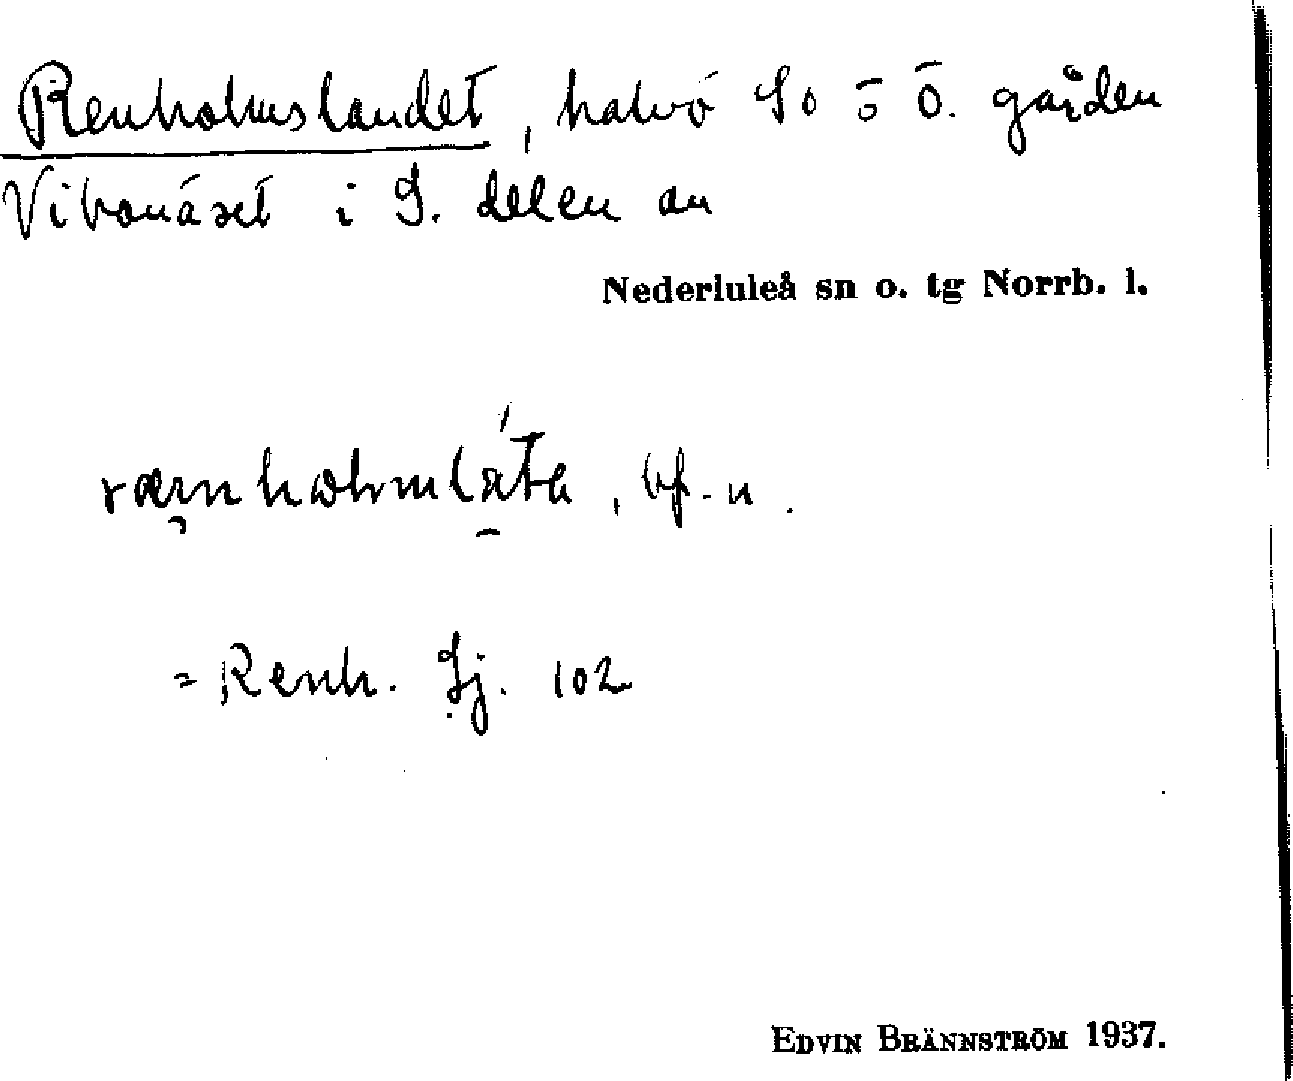 Renholmslandet, halvö S o ö Ö. gården
Vibonäset i S. delen av
Nederluleå sn o. tg Norrb. l.
rænhωlmláta, bf. n.
= Renh. Sj. 102
EDVIN BRÄNNSTRÖM 1937.